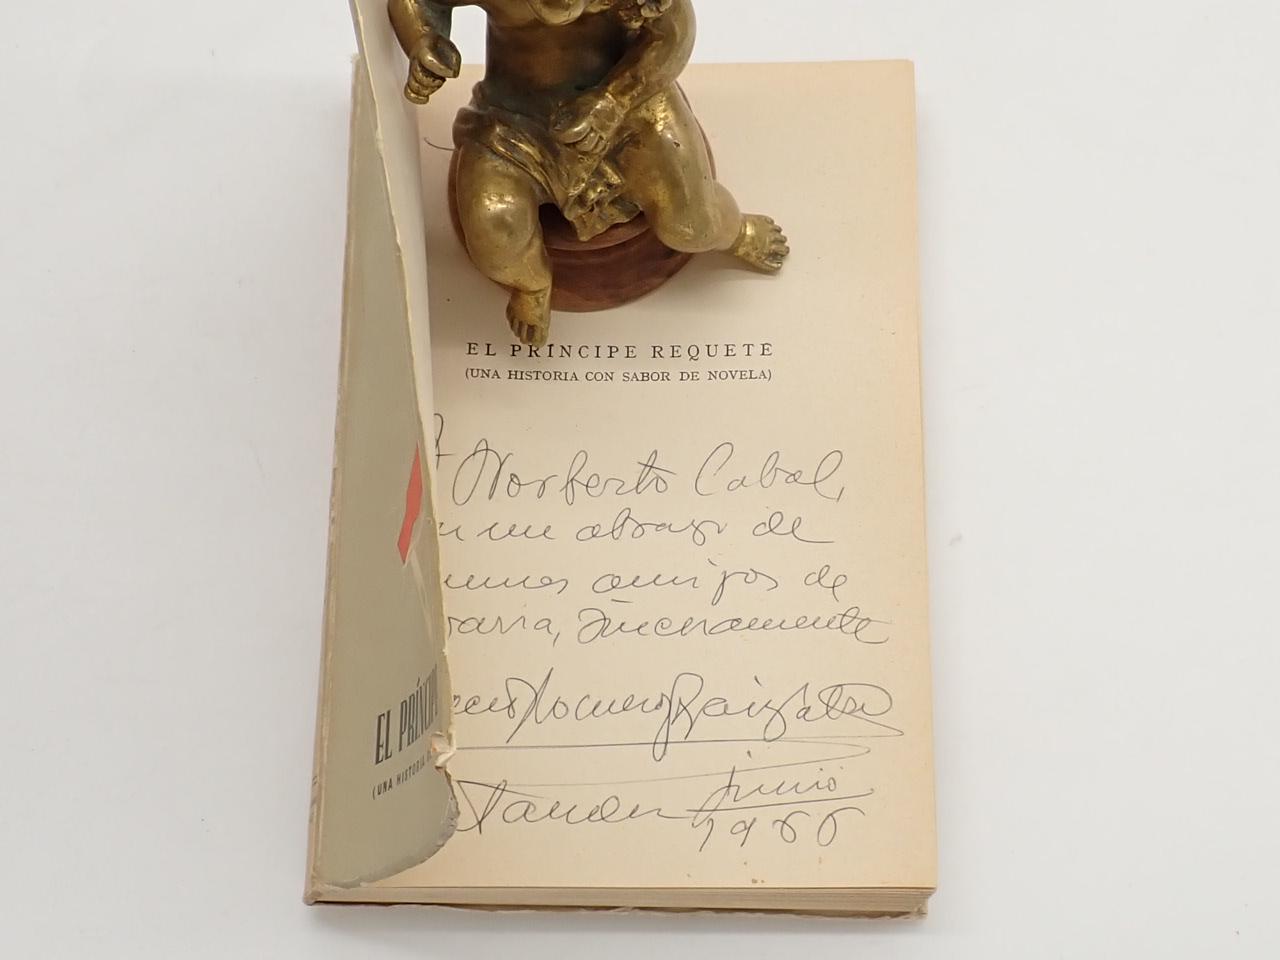 EL PRÍNCIPE REQUETE
(UNA HISTORIA CON SABOR DE NOVELA)
A Norberto Cabal,
un abrazo de
amigos de
sinceramente
Romero Raizábal
junio
1966
EL PRÍNCIPE
(UNA HISTORIA